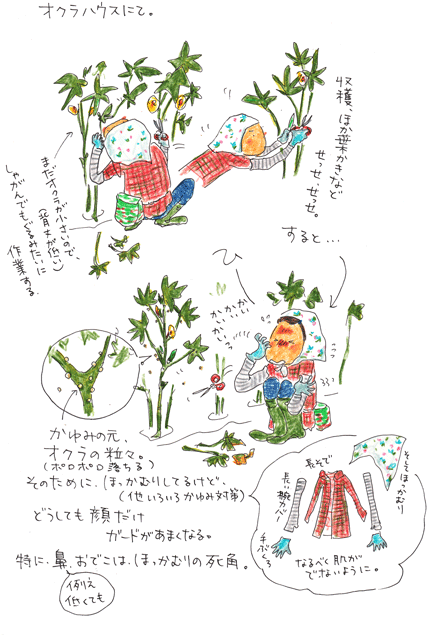 オクラハウスにて。
収穫、ほか葉かきなど
せっせ、せっせ。
まだオクラが小さいので、
(背丈が低い)
しゃがんでもぐるみたいに
作業する。
すると…
かいかい
かいかい
かいーっ
かゆみの元、
オクラの粒々。
(ポロポロ落ちる)
そのために、ほっかむりしてるけど、
(他いろいろかゆみ対策)
どうしても顔だけ
ガードがあまくなる。
特に、鼻、おでこは、ほっかむりの死角。
例え
低くても
そしてほっかむり
長そで
長い腕カバー
手ぶくろ
なるべく肌が
でないように。